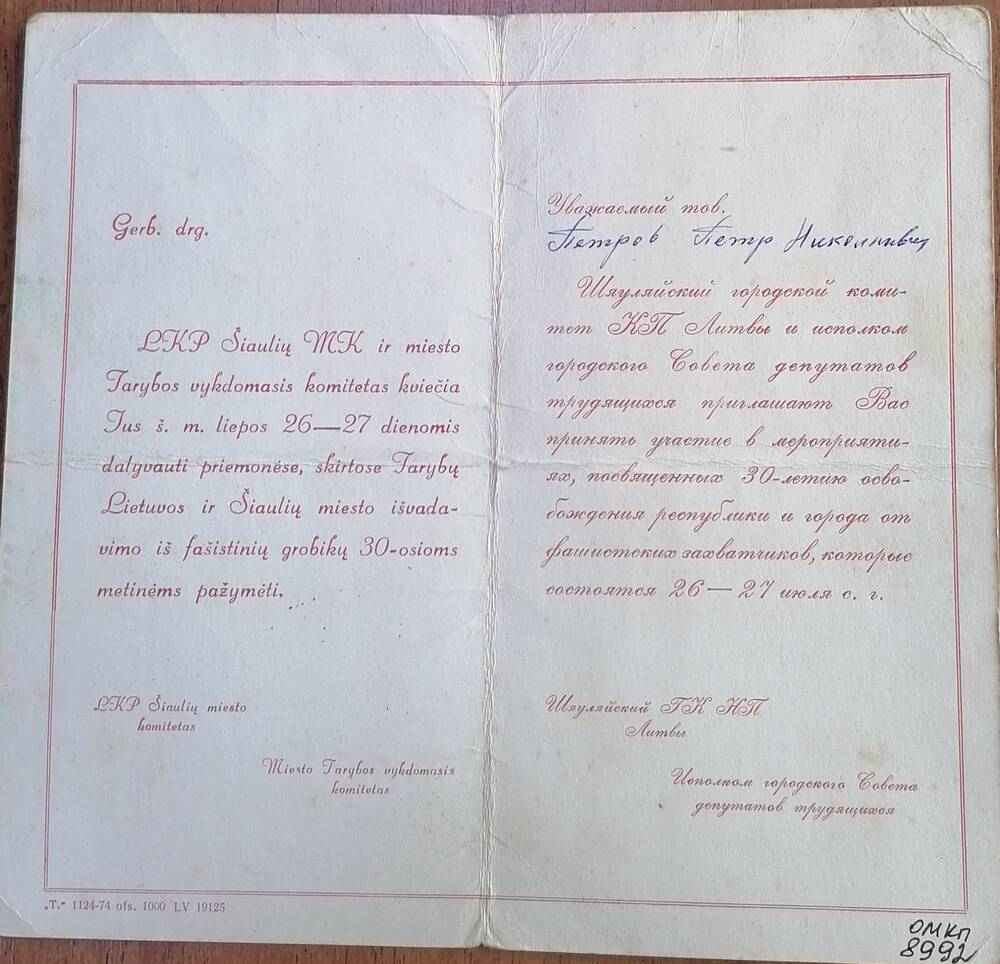 Gerb. drg.
LKP Šiaulių MK ir miesto
Tarybos vykdomasis komitetas kviečia
Jus š. m. liepos 26—27 dienomis
dalyvauti priemonėse, skirtose Tarybų
Lietuvos ir Šiaulių miesto išvada-
vimo iš fašistinių grobikų 30-osioms
metinėms pažymėti.
LKP Šiaulių miesto
komitetas
Miesto Tarybos vykdomasis
komitetas
„T.“ 1124-74 ofs. 1000 LV 19125
Уважаемый тов.
Петров Петр Николаевич
Шяуляйский городской коми-
тет КП Литвы и исполком
городского Совета депутатов
трудящихся приглашают Вас
принять участие в мероприяти-
ях, посвященных 30-летию осво-
бождения республики и города от
фашистских захватчиков, которые
состоятся 26 — 27 июля с. г.
Шяуляйский ГК КП
Литвы
Исполком городского Совета
депутатов трудящихся
ОМКП
8992